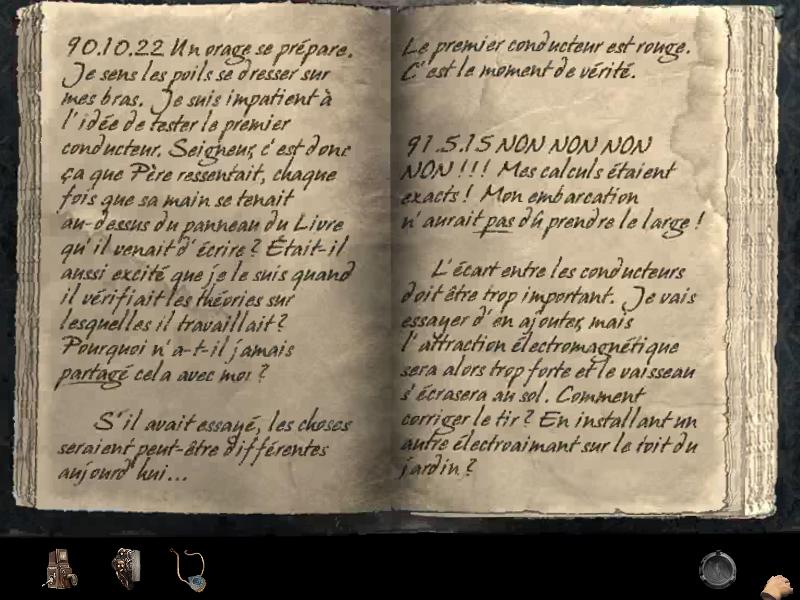 90.10.22 Un orage se prépare.
Je sens les poils se dresser sur
mes bras. Je suis impatient à
l'idée de tester le premier
conducteur. Seigneur, c'est donc
ça que Père ressentait, chaque
fois que sa main se tenait
au-dessus du panneau du Livre
qu'il venait d'écrire ? Était-il
aussi excité que je le suis quand
il vérifiait les théories sur
lesquelles il travaillait ?
Pourquoi n'a-t-il jamais
partagé cela avec moi ?
S'il avait essayé, les choses
seraient peut-être différentes
aujourd'hui...
Le premier conducteur est rouge.
C'est le moment de vérité.
91.5.15 NON NON NON
NON !!! Mes calculs étaient
exacts ! Mon embarcation
n'aurait pas dû prendre le large !
L'écart entre les conducteurs
doit être trop important. Je vais
essayer d'en ajouter, mais
l'attraction électromagnétique
sera alors trop forte et le vaisseau
s'écrasera au sol. Comment
corriger le tir ? En installant un
autre électroaimant sur le toit du
jardin ?